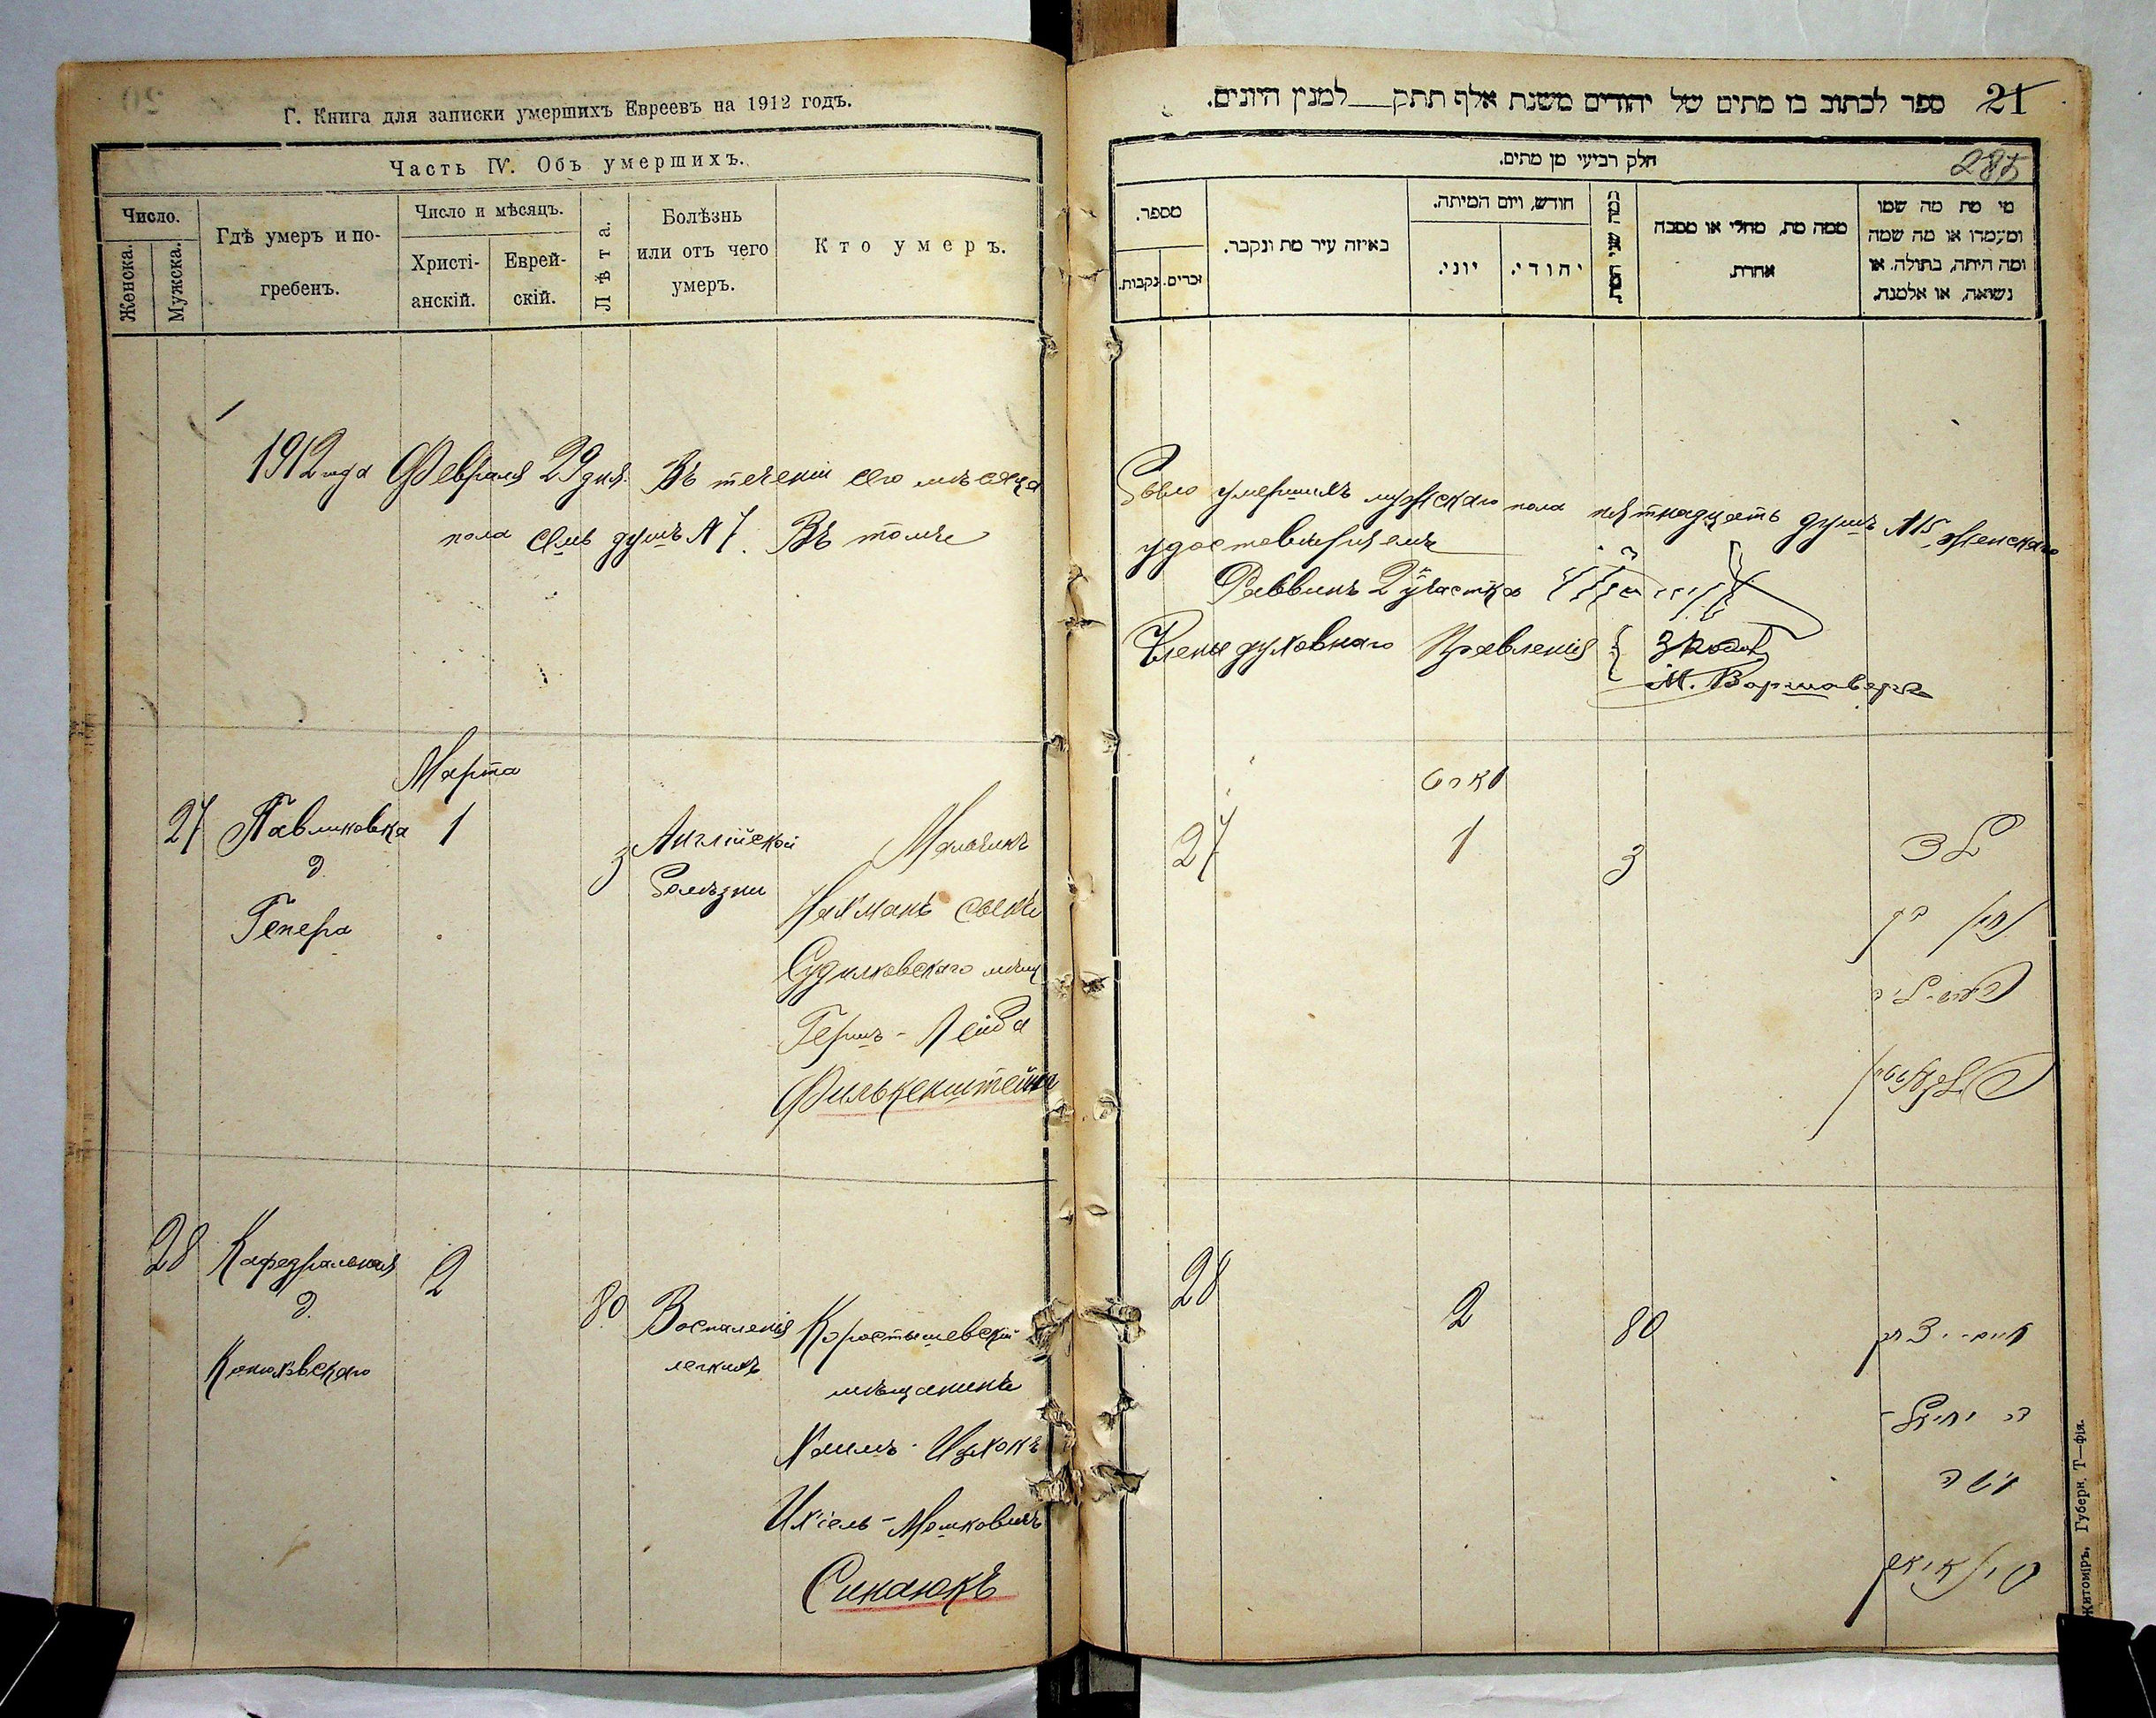 Г. Книга для записки умершихъ Евреевъ на 1912 годъ.
Часть IV. Объ умершихъ.
Число.
Женска.
Мужска.
Гдѣ умеръ и по-
гребенъ.
Число и мѣсяцъ.
Христі-
анскій.
Еврей-
скій.
Лѣта.
Болѣзнь
или отъ чего
умеръ.
Кто умеръ.
1912 года Февраля 29 дня. Въ теченіи сего мѣсяца
пола семь душъ № 7. Въ томъ
Марта
27 Павликовка 1 3 Англійской Мальчикъ
д. болѣзни
Гепера
Нахманъ сынъ
Судилковскаго мѣщ
Гершъ-Лейба
Филькенштейна
28 Кафедральная 2 80 Воспаленія Коростышевскій
д. легкихъ мѣщанинъ
Хаимъ-Ицхокъ
Ихіель-Мошковичъ
Синаюкъ
ספר לכתוב בו מתים של יהודים משנת אלף תתק למנין היונים. 21
287
חלק רביעי מן מתים.
מספר.
זכרים.
נקבות.
באיזה עיר מת ונקבר.
חודש, ויום המיתה.
יוני.
יהודי.
כמה שני המת.
ממה מת, מחלי או מסבה
אחרת.
מי מת מה שמו
ומעמדו או מה שמה
ומה היתה, בתולה. או
נשואה, או אלמנה.
было умершихъ мужскаго пола пятнадцать душъ № 15 женскаго
удостовѣряемъ
Раввинъ 2 участка
Члены духовнаго Правленія
М. Варшаверъ
מארט
27 1 3 ילד
נחמן בן
הערש-ליב
28 2 80 חיים-יצחק
בר יחיאל-
משה
סינאיוק
Житоміръ, Губерн. Т—фія.